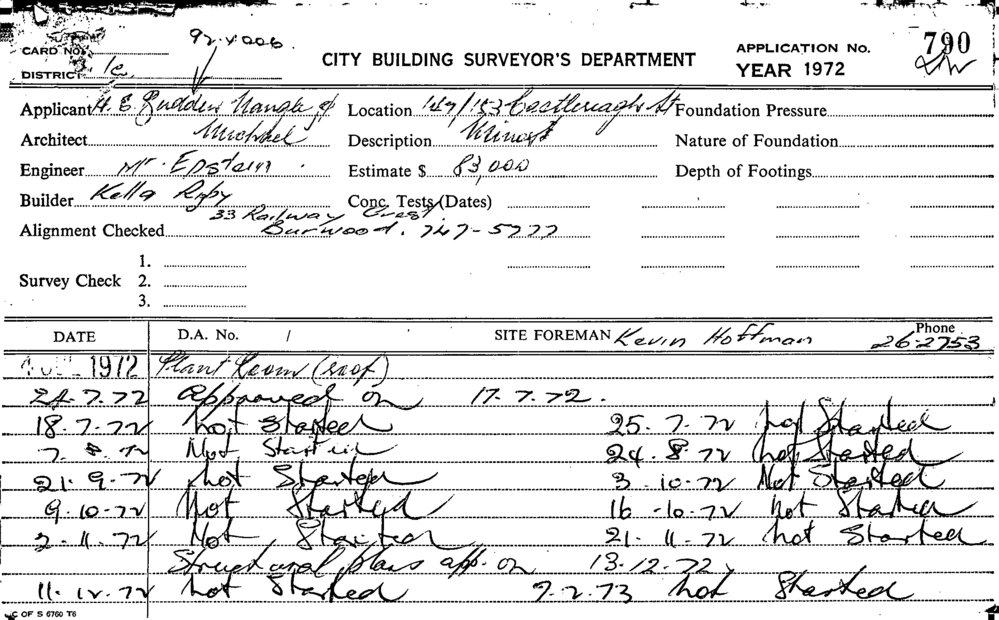 92.4006
CARD No.
CITY BUILDING SURVEYOR'S DEPARTMENT
APPLICATION No. 790
DISTRICT 1c
YEAR 1972
Applicant H. E. Rudder Nangle &
Location 149/153 Castlereagh St
Foundation Pressure
Architect Michael
Description
Nature of Foundation
Engineer Mr. Epstein
Estimate $ 83,000
Depth of Footings
Builder Kella Rigby
Conc. Tests (Dates)
33 Railway Crest.
Alignment Checked Burwood. 747-5777
1.
Survey Check 2.
3.
DATE D.A. No. / SITE FOREMAN Kevin Hoffman Phone 26-2753
1972 Plant Room (roof)
24.7.72 Approved on 17.7.72.
18.7.72 not Started 25.7.72 not Started
7.8.72 Not Started 24.8.72 not Started
21.9.72 not Started 3.10.72 Not Started
9.10.72 Not Started 16.10.72 Not Started
2.11.72 Not Started 21.11.72 not Started
Structural plans app. on 13.12.72
11.12.72 not Started 9.2.73 not Started
C OF S 6760 T6